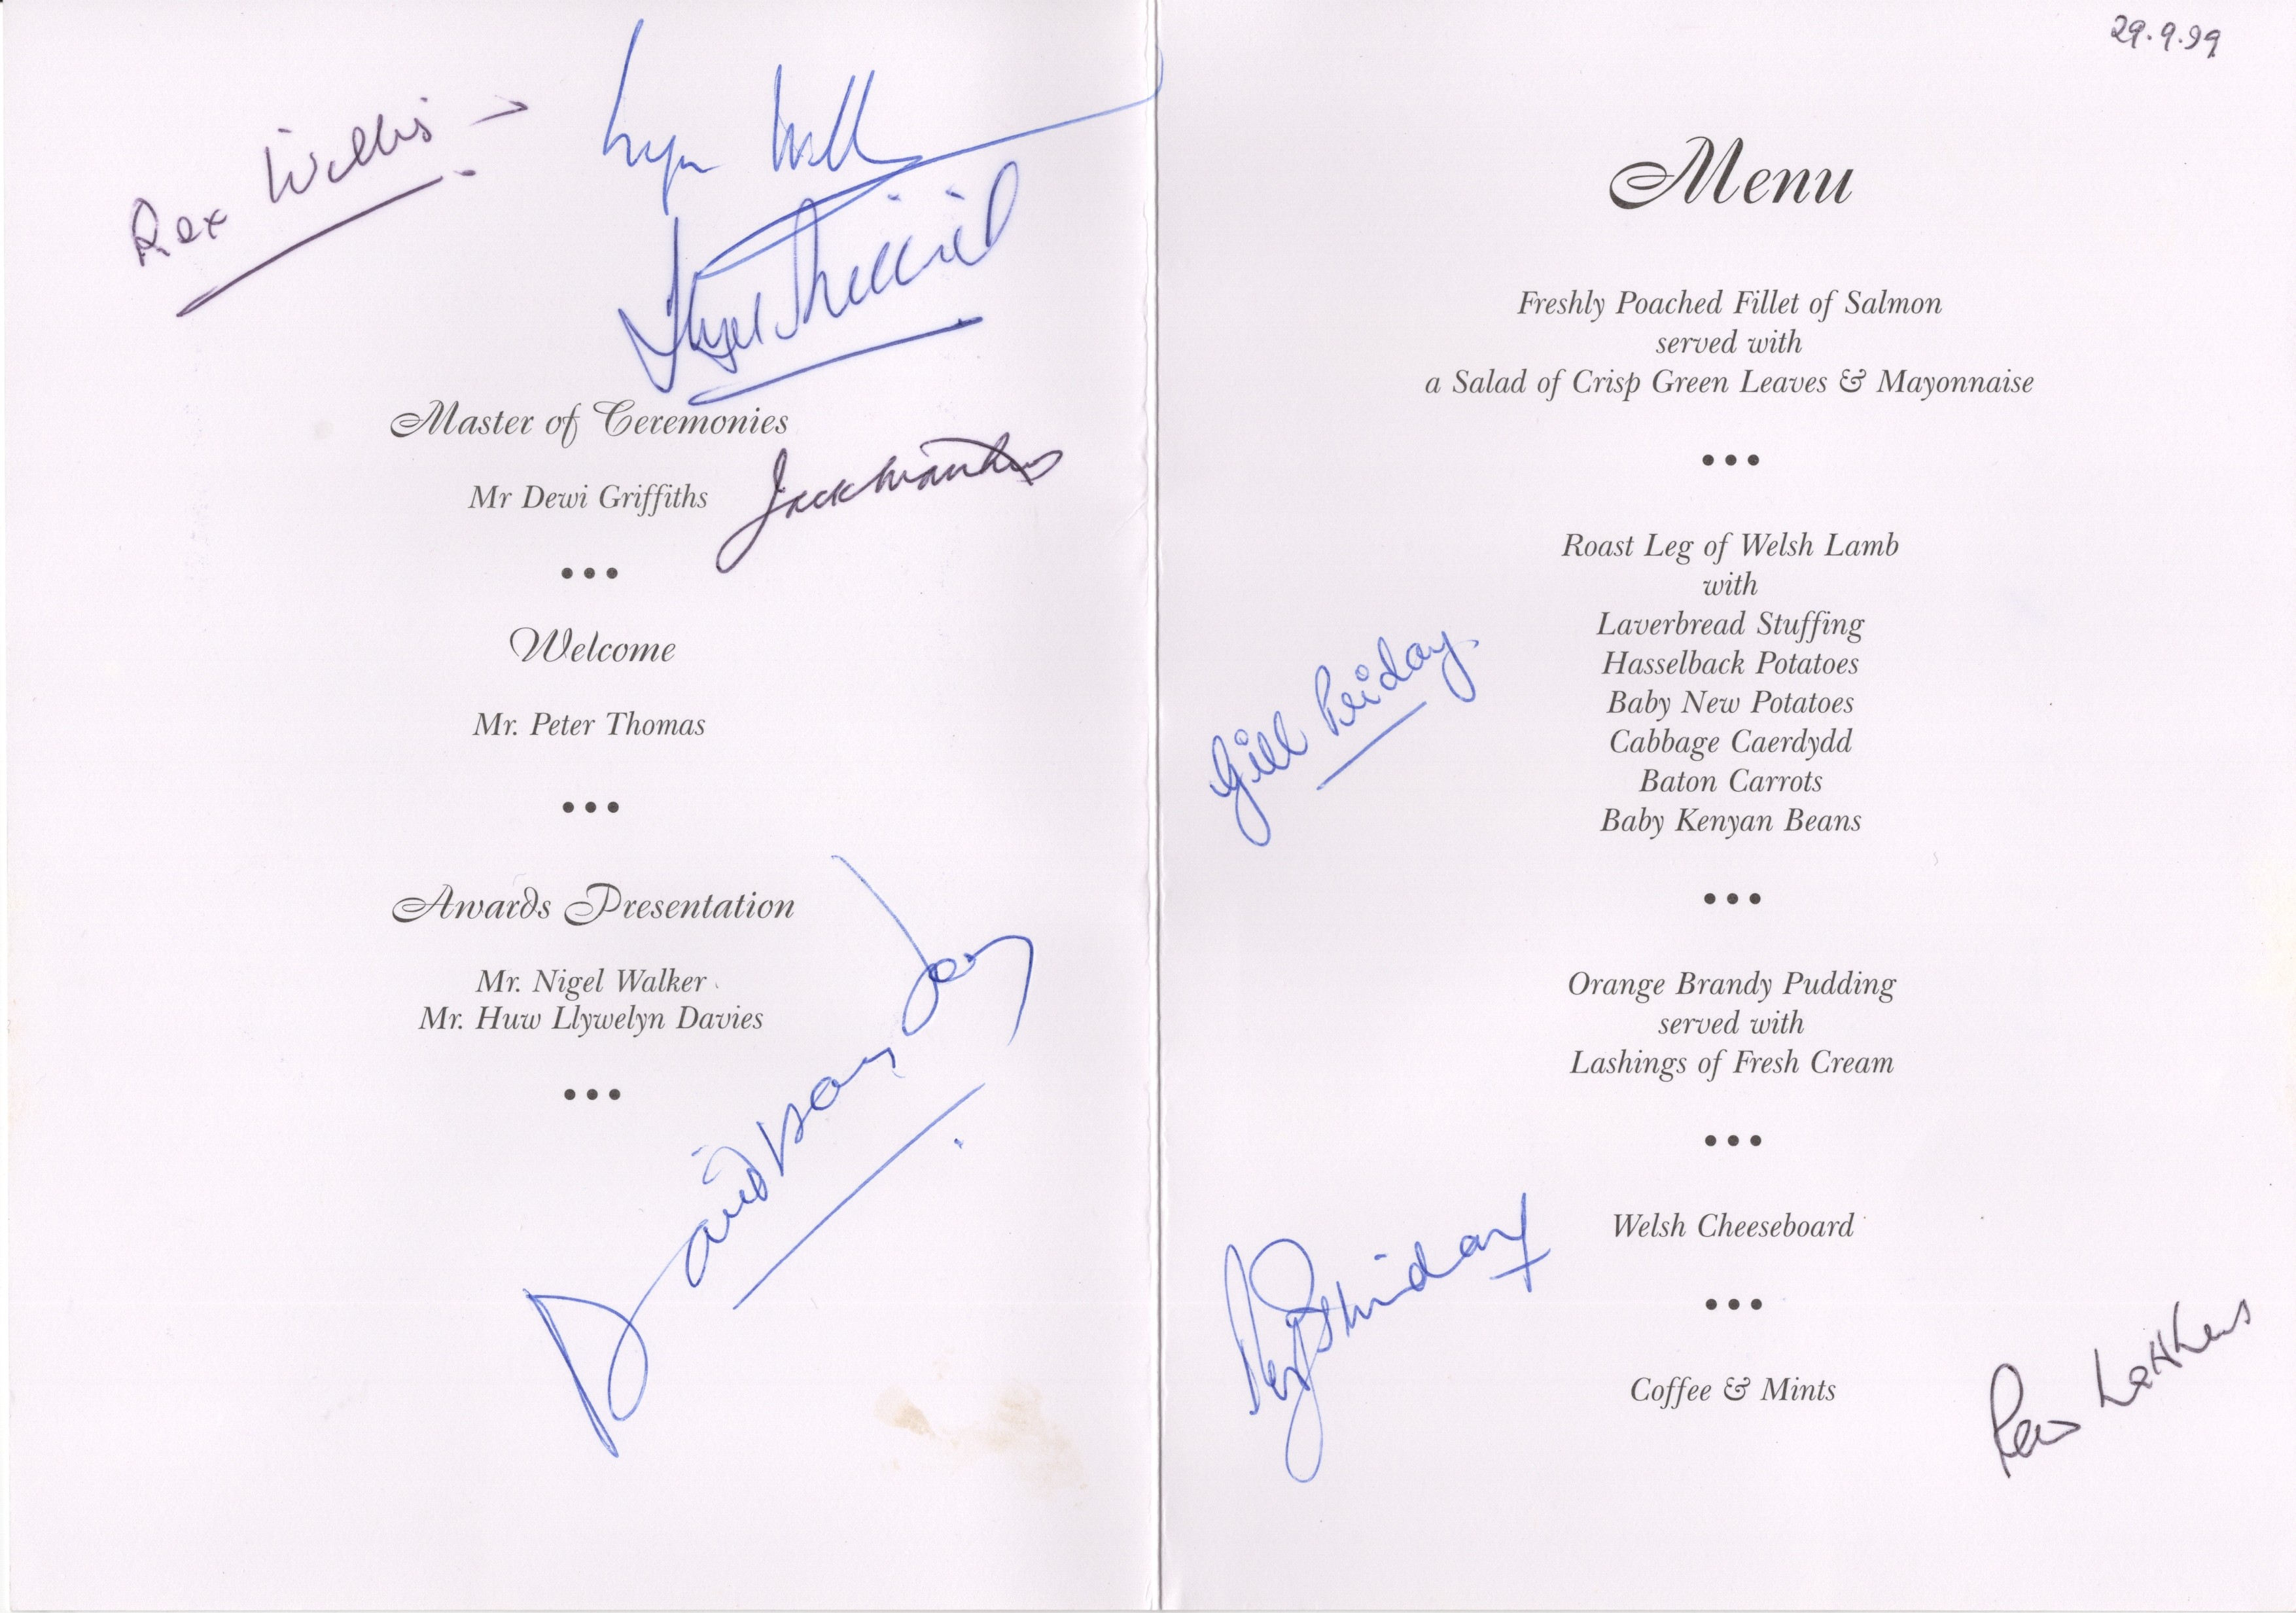 Rex Willis →
Master of Ceremonies
Mr Dewi Griffiths
Jack Matthews
•••
Welcome
Mr. Peter Thomas
•••
Awards Presentation
Mr. Nigel Walker
Mr. Huw Llywelyn Davies
•••
David
29.9.99
Menu
Freshly Poached Fillet of Salmon
served with
a Salad of Crisp Green Leaves & Mayonnaise
•••
Roast Leg of Welsh Lamb
with
Laverbread Stuffing
Hasselback Potatoes
Baby New Potatoes
Cabbage Caerdydd
Baton Carrots
Baby Kenyan Beans
Gill Priday
•••
Orange Brandy Pudding
served with
Lashings of Fresh Cream
•••
Welsh Cheeseboard
•••
Coffee & Mints